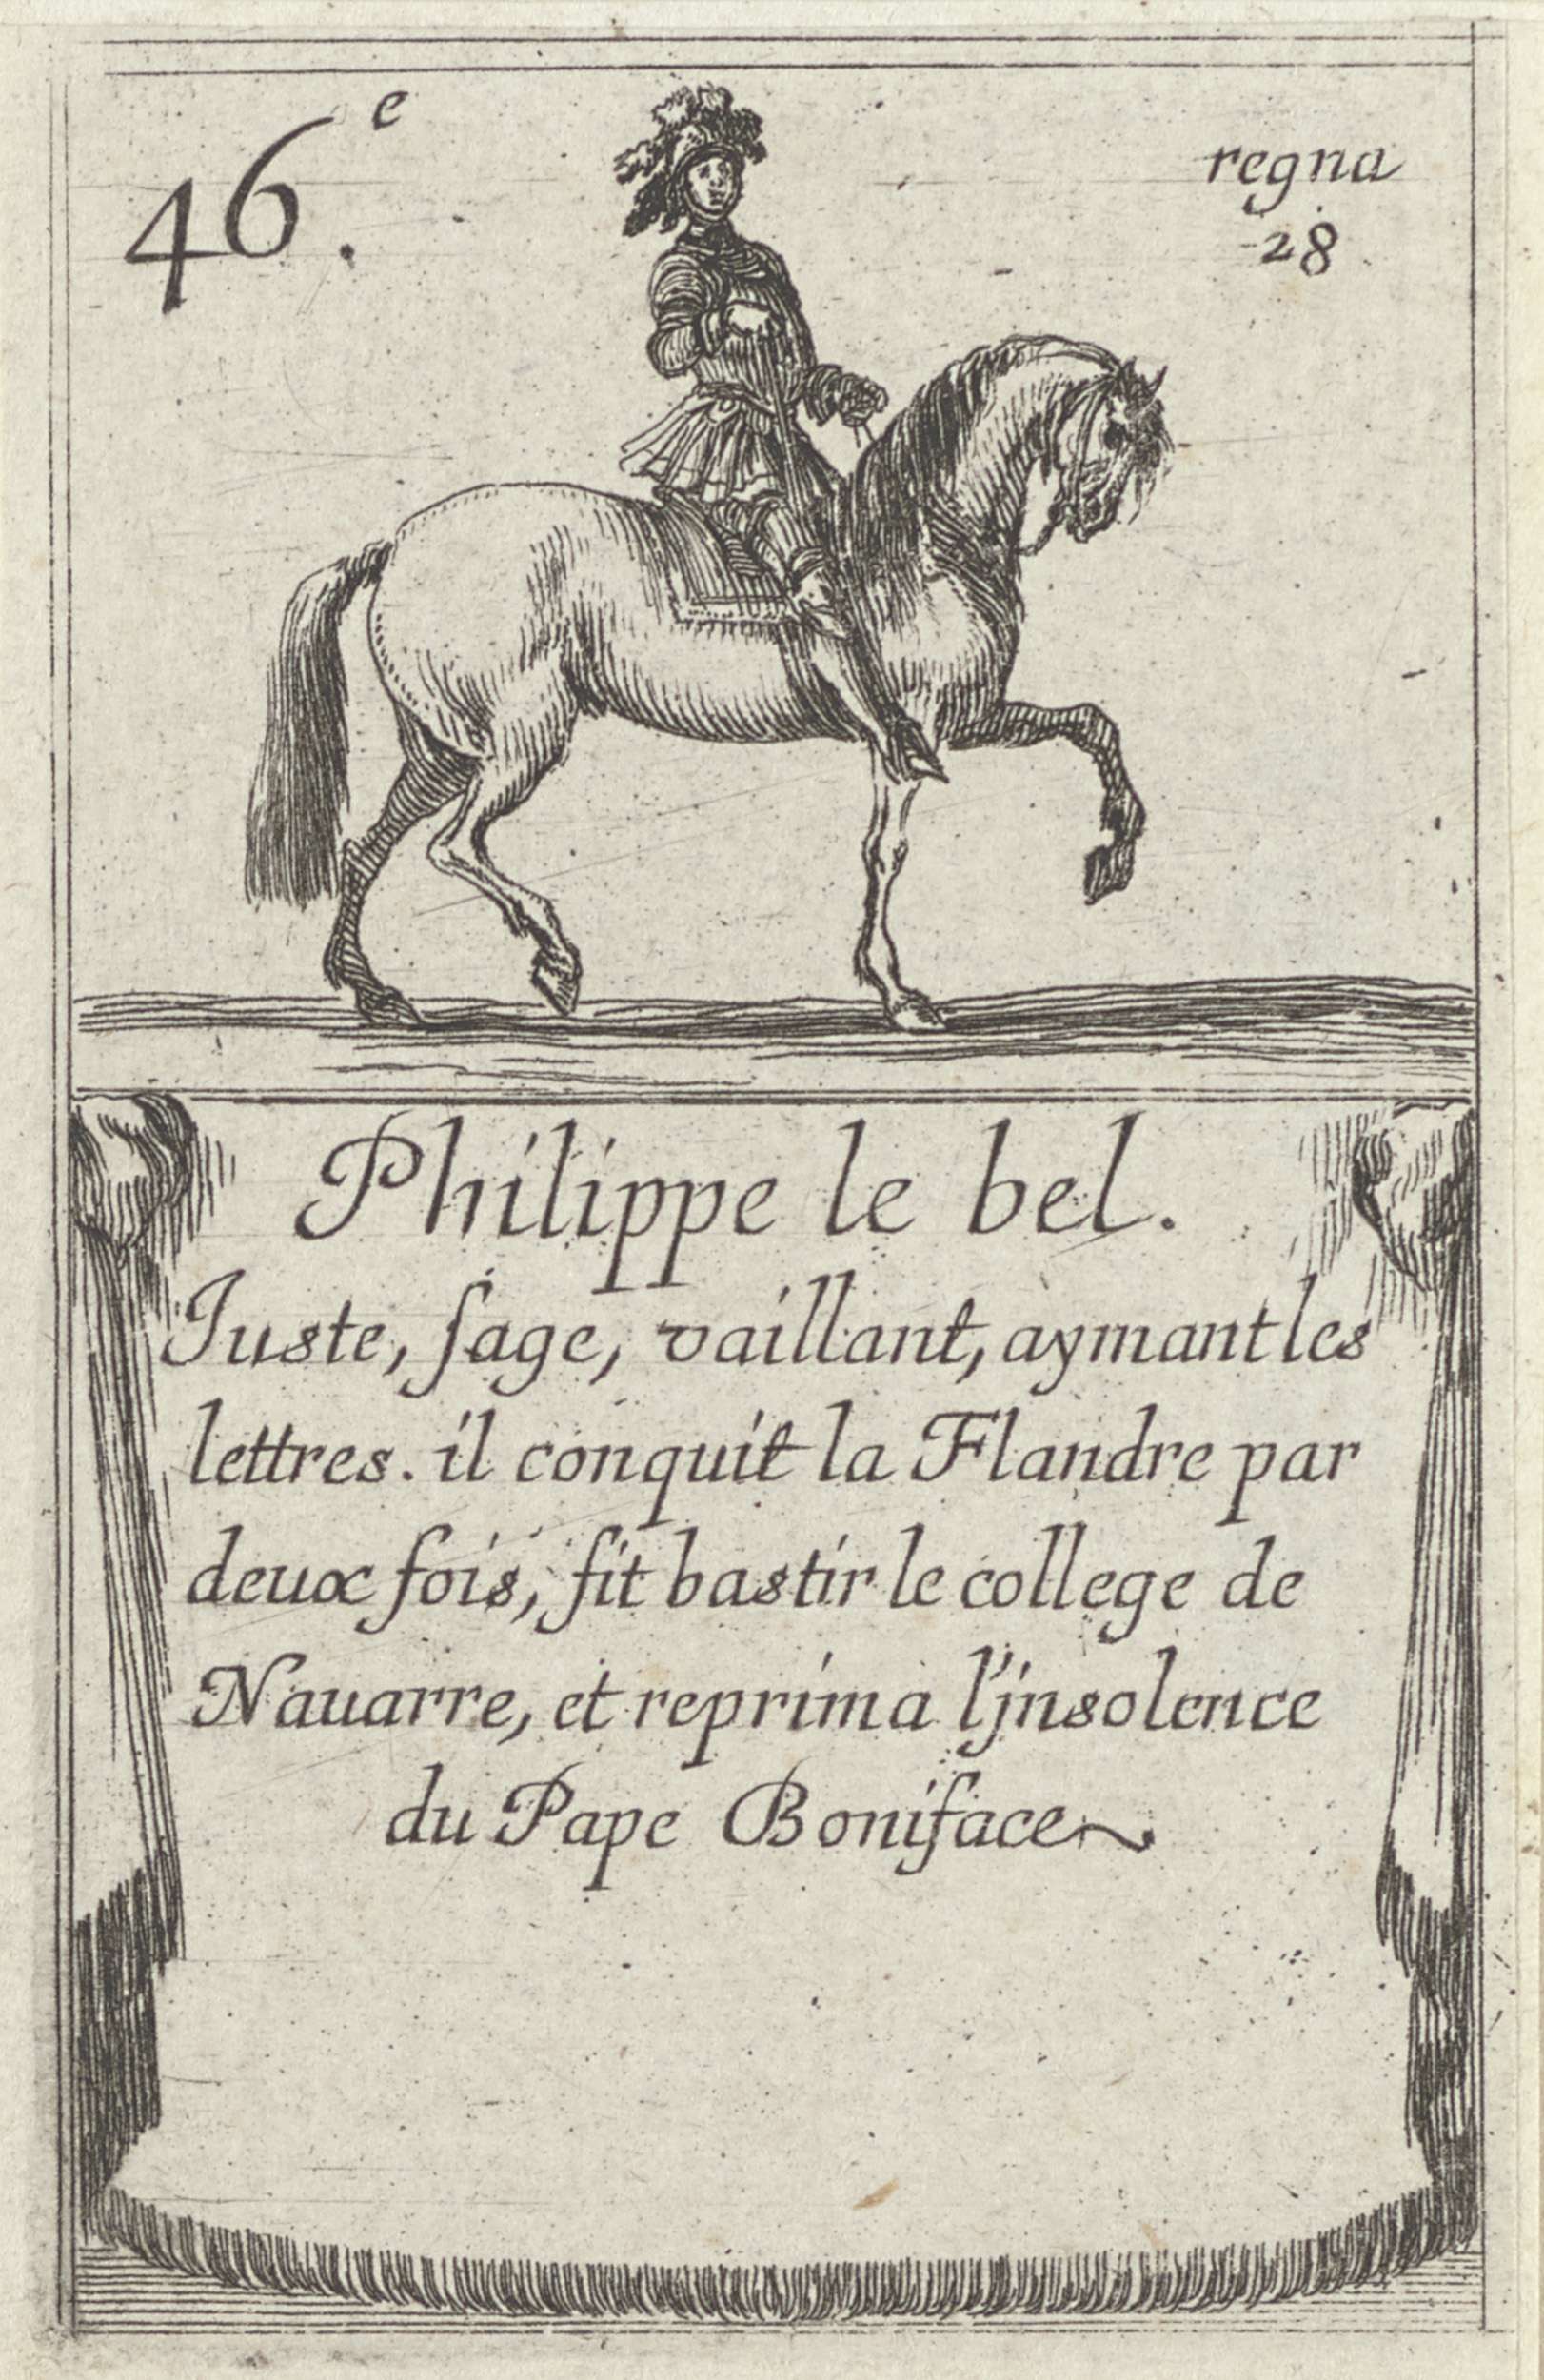 46.e
regna
28
Philippe le bel.
Juste, ſage, vaillant, aymant les
lettres. il conquit la Flandre par
deux fois, fit bastir le college de
Nauarre, et reprima l'jnsolence
du Pape Boniface